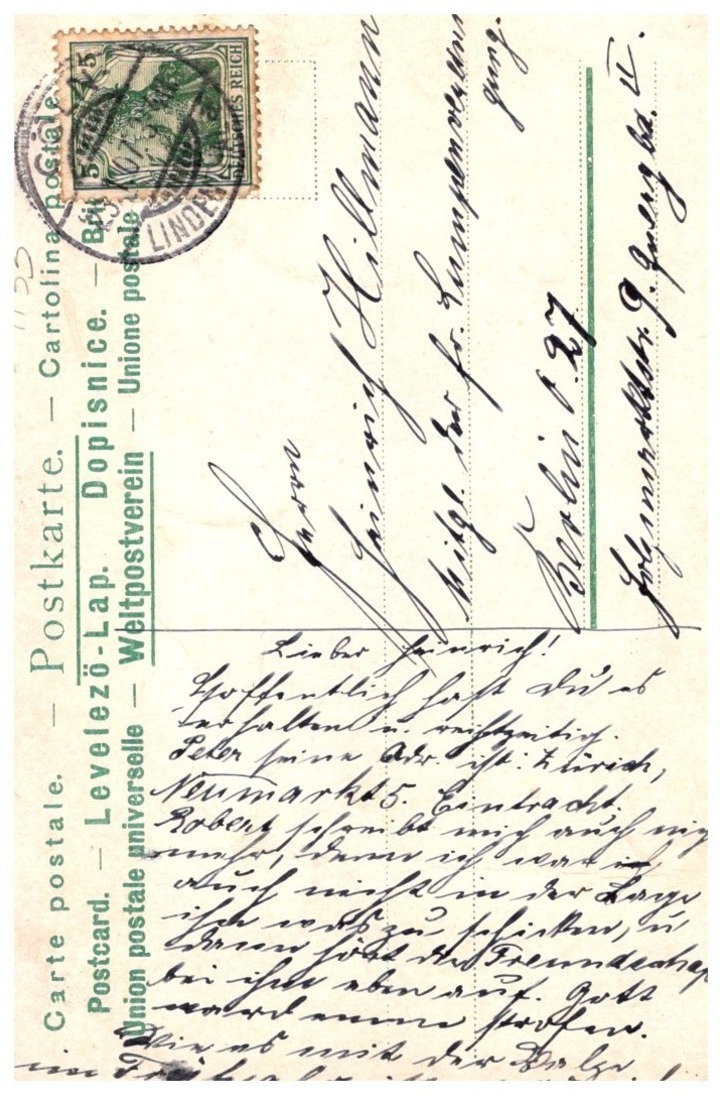 Carte postale. — Postkarte. — Cartolina postale
Postcard. — Levelező-Lap. Dopisnice. —
Union postale universelle — Weltpostverein — Unione postale
5 5
DEUTSCHES REICH
LINDEN
Herrn
Heinrich Hillmann
Mitgl. der fr.
Berlin O. 27
Holzmarktstr. 9. Quergbd. II.
Lieber Heinrich!
Hoffentlich hast Du es
erhalten u. rechtzeitig.
Peter seine Adr. ist: Zürich,
Neumarkt 5. Eintracht.
Robert schreibt mich auch nig
mehr, denn ich war
auch nicht in der Lage
ihm was zu schicken, u
dann hört die Freundschap
bei ihm eben auf. Gott
ward emme strofen.
Wie es mit der Walze
im